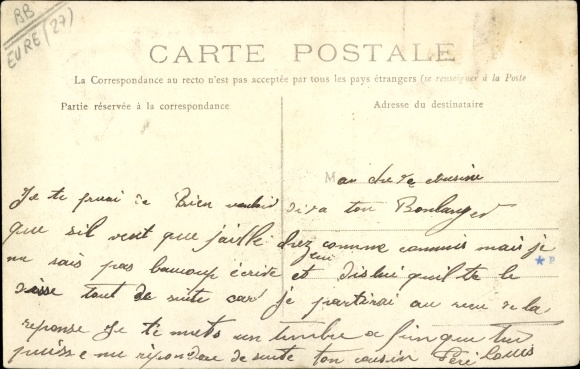 BB
EURE (27)
CARTE POSTALE
La Correspondance au recto n'est pas acceptée par tous les pays étrangers (se renseigner à la Poste
Partie réservée à la correspondance
Adresse du destinataire
M
Je te de Bien dira ton Boulanger
que sil veut que jaille chez lui comme commis mais je
ne sais pas baucoup écrire et dislui quil te le
disse tout de suite car je partirai au recu de la
réponse Je te mets un timbre afin que tu
puisse me répondre de suite ton cousin Louis